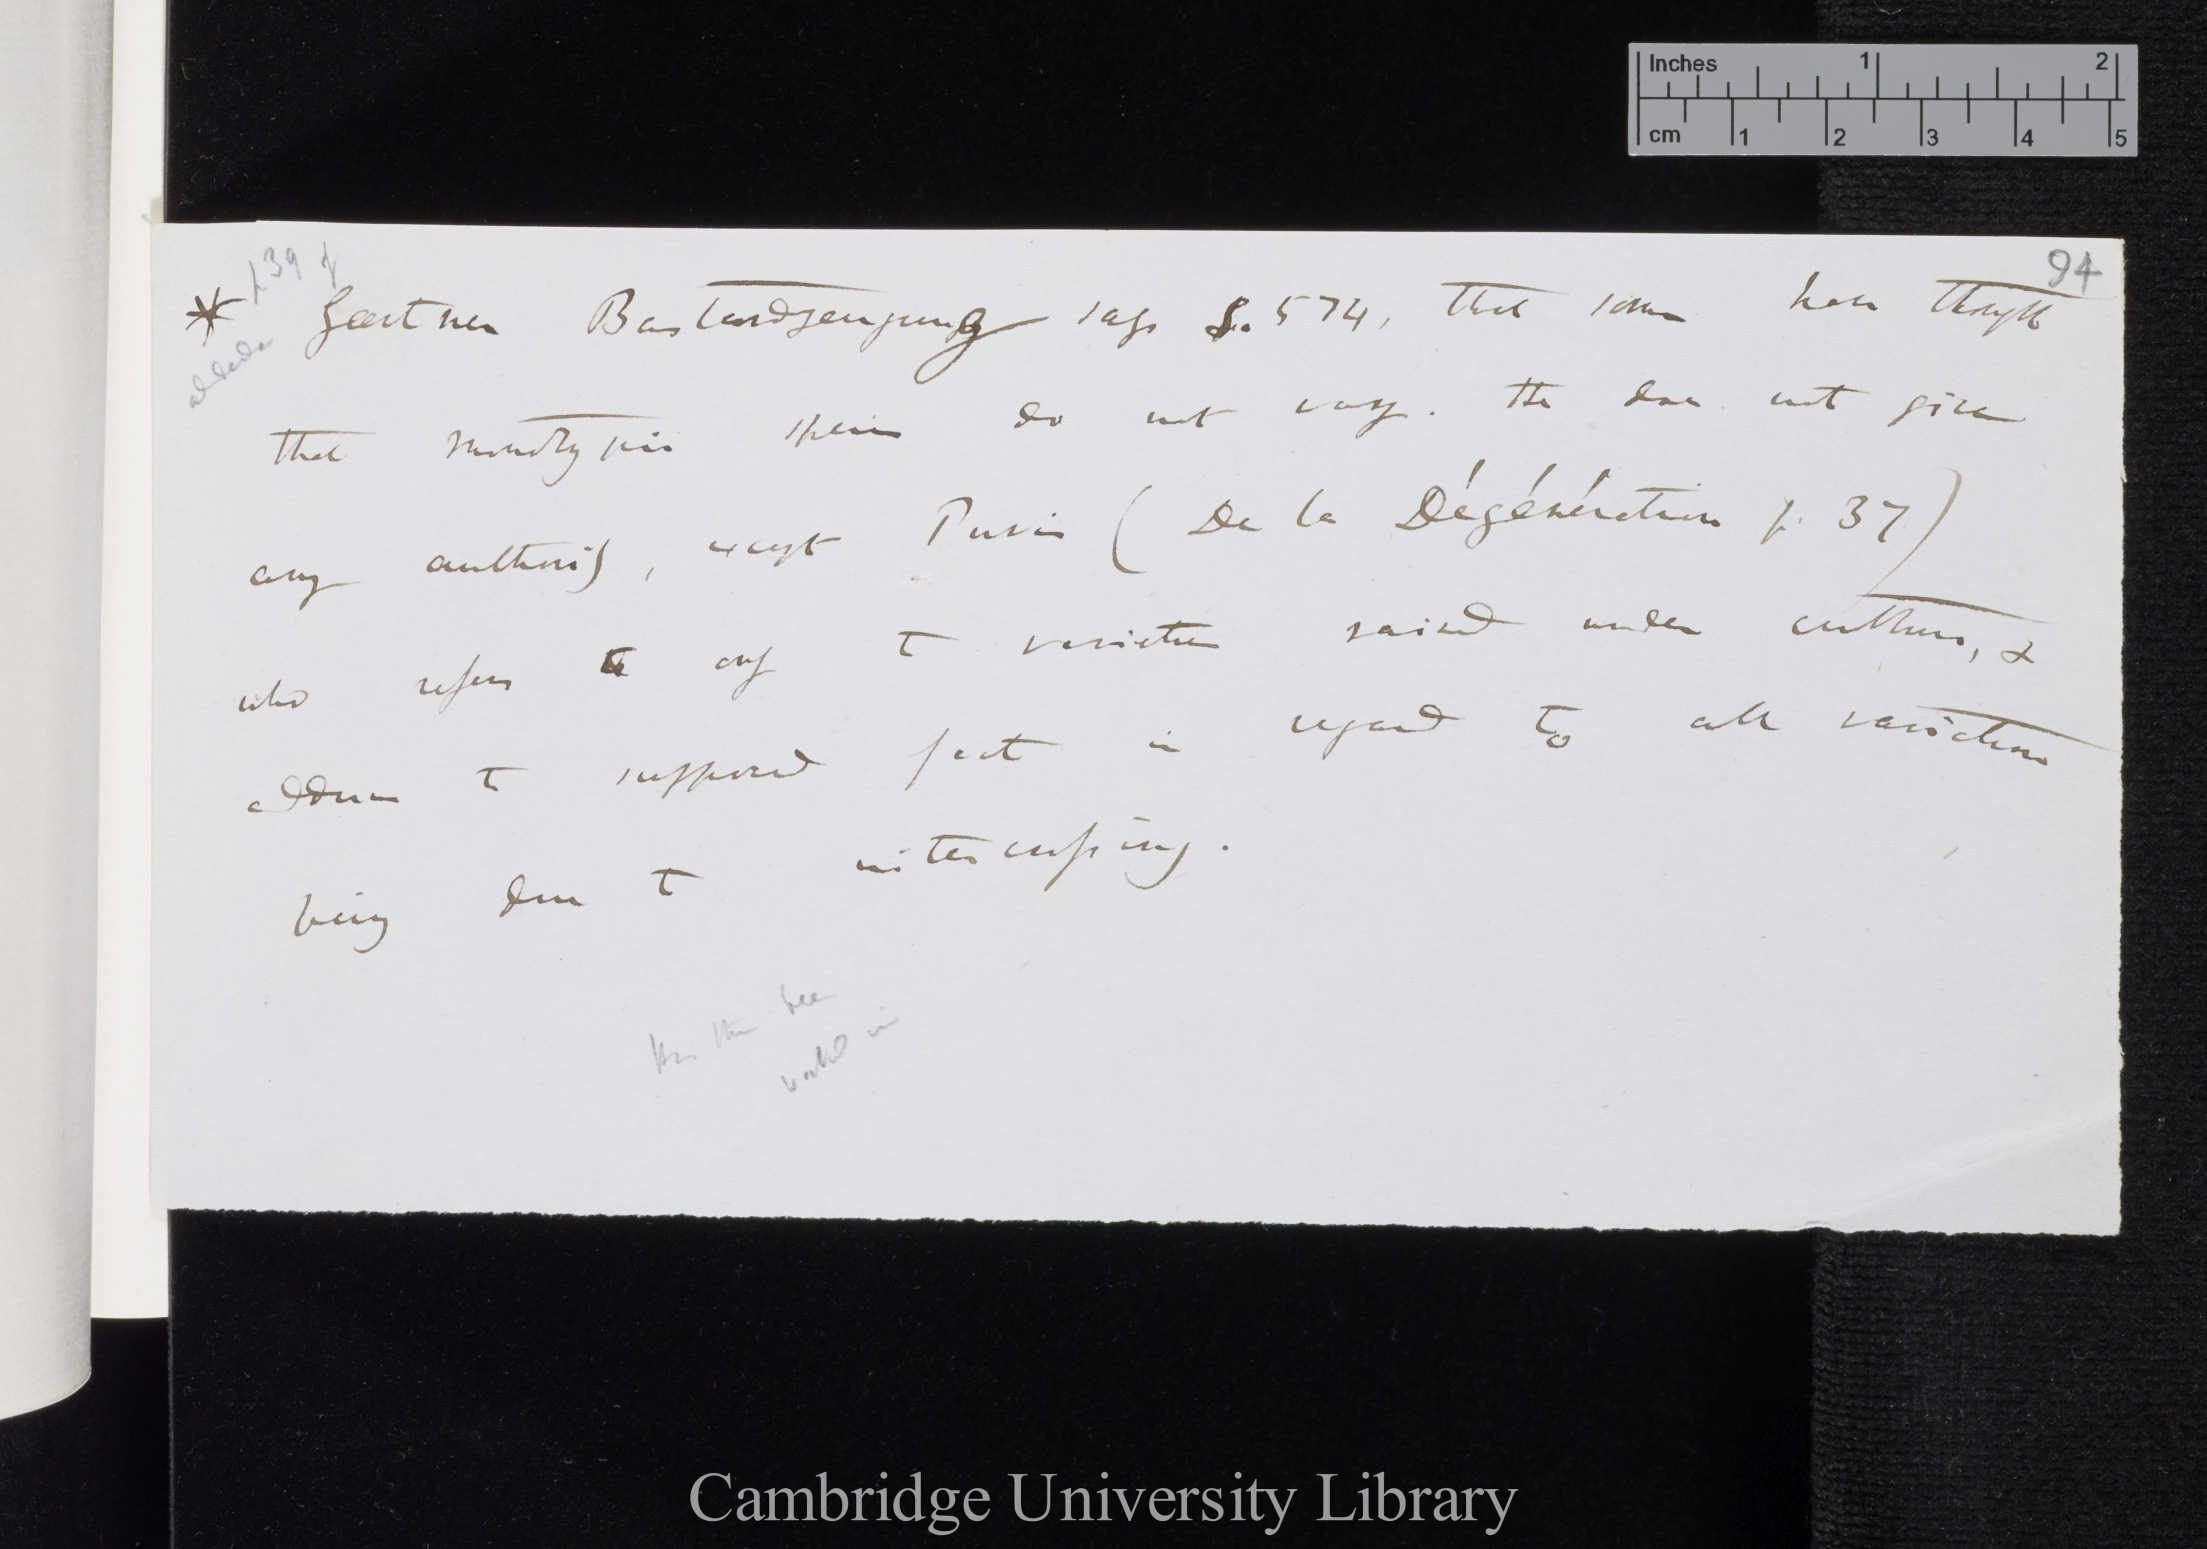 Inches 1 2
cm 1 2 3 4 5
94
p 39
* Gærtner Bastardzeugung says S. 574, that some have thought
that monotypic species do not vary. He does not give
any authority, except Puvis (De la Dégénération p. 37)
who refers to only t varieties raised under culture, &
adduces t supposed fact in regard to all varieties
being due to intercrossing.
Has this been
worked in
Cambridge University Library